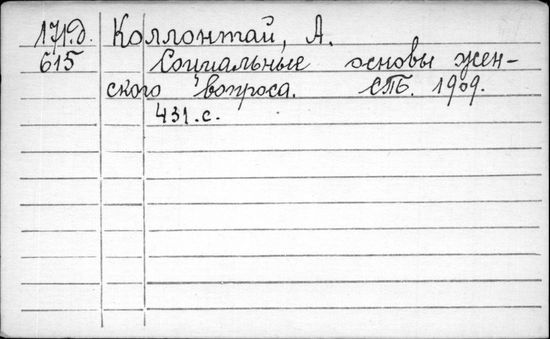 171.д. Коллонтай, А.
615 Социальные основы жен-
ского вопроса. СПБ. 1909.
431.с.